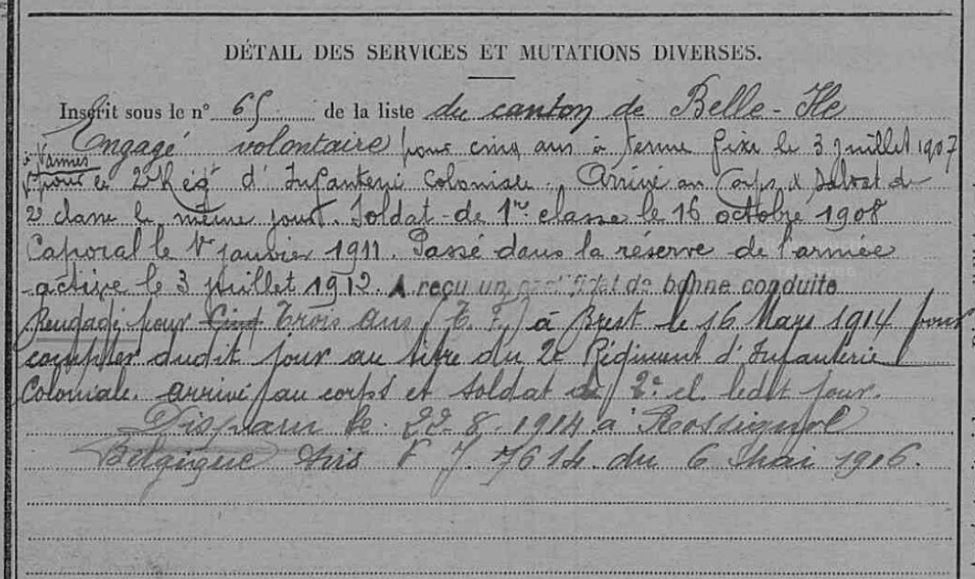 DÉTAIL DES SERVICES ET MUTATIONS DIVERSES.
Inscrit sous le n° 65 de la liste du canton de Belle-Ile
Engagé volontaire pour cinq ans à terme fixe le 3 juillet 1907
à Vannes
pour le 2e Régt d'Infanterie Coloniale. Arrivé au Corps & Soldat de
2e classe le même jour. Soldat de 1re classe le 16 octobre 1908
Caporal le 1er janvier 1911. Passé dans la réserve de l'armée
active le 3 juillet 1912. A reçu un certificat de bonne conduite
Rengagé pour Cinq Trois ans (T. F.) à Brest le 16 Mars 1914 pour
compter dudit jour au titre du 2e Régiment d'Infanterie
Coloniale. arrivé au corps et soldat de 2e cl. ledit jour.
Disparu le 22-8-1914 à Rossignol
Belgique Avis F J. 7614. du 6 Mai 1916.